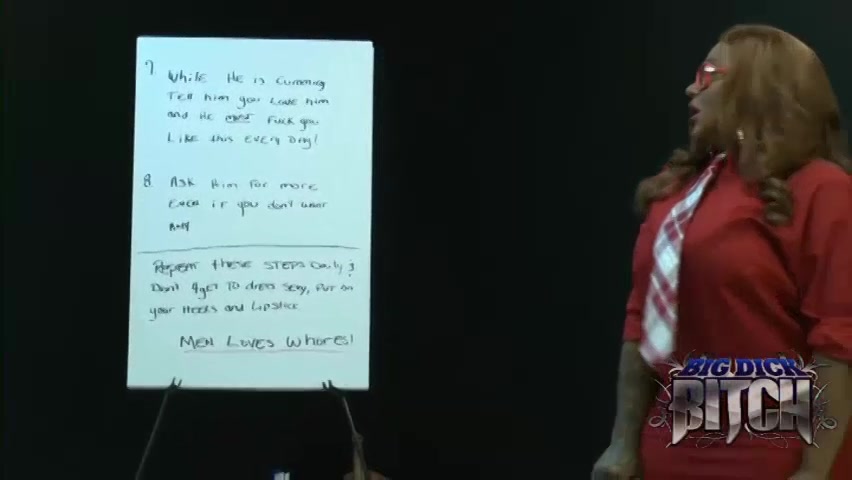 7 While He is Cumming
Tell him you Love him
and He must Fuck you
Like this EVERY Day!
8 Ask Him For more
EVEN if you don't want
any
Repeat these STEPS Daily &
Don't 4get To dress sexy, Put on
your Heels and Lipstick
MEN LOVES Whores!
BIG DICK
BITCH